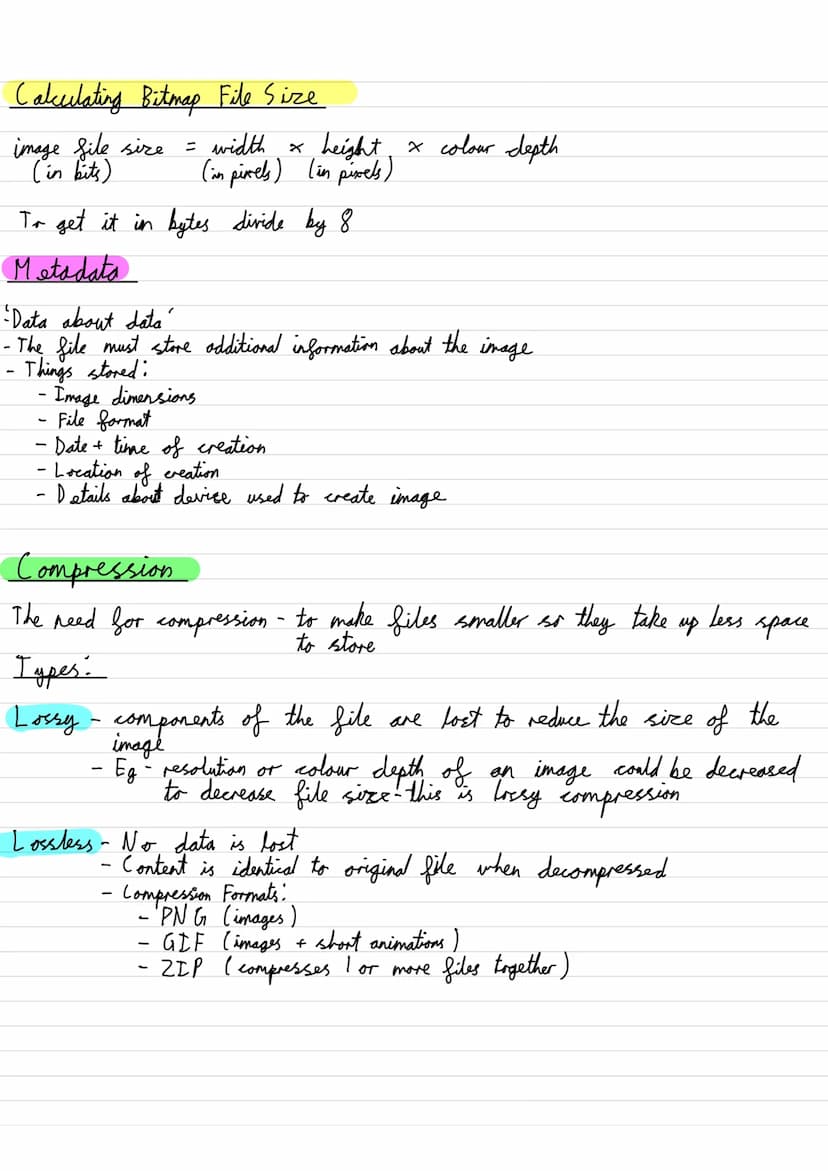 Calculating Bitmap File Size
image file size = width × height × colour depth
(in bits) (in pixels) (in pixels)
To get it in bytes divide by 8
Metadata
'Data about data'
- The file must store additional information about the image
- Things stored:
- Image dimensions
- File format
- Date + time of creation
- Location of creation
- Details about device used to create image
Compression
The need for compression - to make files smaller so they take up less space
to store
Types:
Lossy - components of the file are lost to reduce the size of the
image
- Eg - resolution or colour depth of an image could be decreased
to decrease file size - this is lossy compression
Lossless - No data is lost
- Content is identical to original file when decompressed
- Compression Formats:
- PNG (images)
- GIF (images + short animations)
- ZIP (compresses 1 or more files together)